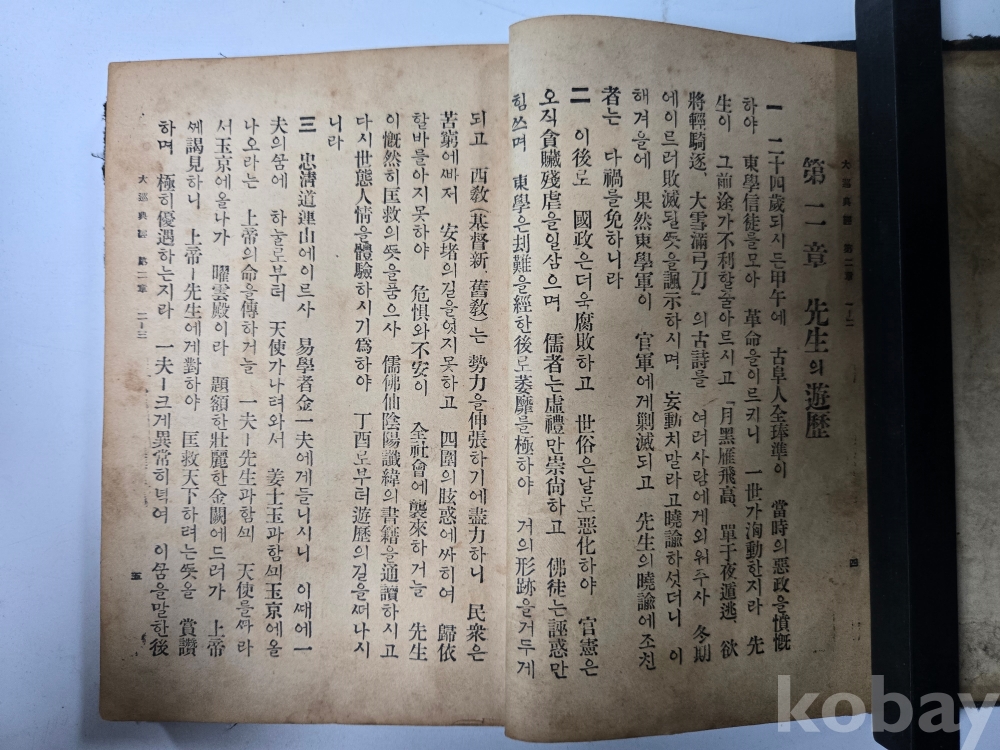 大巡典經 第二章 一—二
第二章 先生의遊歷
一 二十四歲되시든甲午에 古阜人全琫準이 當時의惡政을憤慨
하야 東學信徒를모아 革命을이르키니 一世가洶動한지라 先
生이 그前途가不利할줄아르시고 「月黑雁飛高、單于夜遁逃、欲
將輕騎逐、大雪滿弓刀」의古詩를 여러사람에게외워주사 冬期
에이르러敗滅될뜻을諷示하시며 妄動치말라고曉諭하섯더니 이
해겨을에 果然東學軍이 官軍에게剿滅되고 先生의曉諭에조친
者는 다禍를免하니라
二 이後로 國政은더욱腐敗하고 世俗은날로惡化하야 官憲은
오직貪贓殘虐을일삼으며 儒者는虛禮만崇尙하고 佛徒는誣惑만
힘쓰며 東學은刦難을經한後로萎靡를極하야 거의形跡을거두게
四
되고 西敎(基督新、舊敎)는 勢力을伸張하기에盡力하니 民衆은
苦窮에빠저 安堵의길을엇지못하고 四圍의眩惑에싸히여 歸依
할바를아지못하야 危惧와不安이 全社會에襲來하거늘 先生
이慨然히匡救의뜻을품으사 儒佛仙陰陽讖緯의書籍을通讀하시고
다시世態人情을體驗하시기爲하야 丁酉로부터遊歷의길을떠나시
니라
三 忠淸道連山에이르사 易學者金一夫에게들니시니 이때에一
夫의꿈에 하눌로부터 天使가나려와서 姜士玉과함ᄭᅴ玉京에올
나오라는 上帝의命을傳하거늘 一夫ㅣ先生과함ᄭᅴ 天使를ᄯᅡ라
서玉京에올나가 曜雲殿이라 題額한壯麗한金闕에드러가 上帝
ᄭᅦ謁見하니 上帝ㅣ先生에게對하야 匡救天下하려는뜻을 賞讚
하며 極히優遇하는지라 一夫ㅣ크게異常히녁여 이꿈을말한後
大巡典經 第二章 二—三
五
kobay